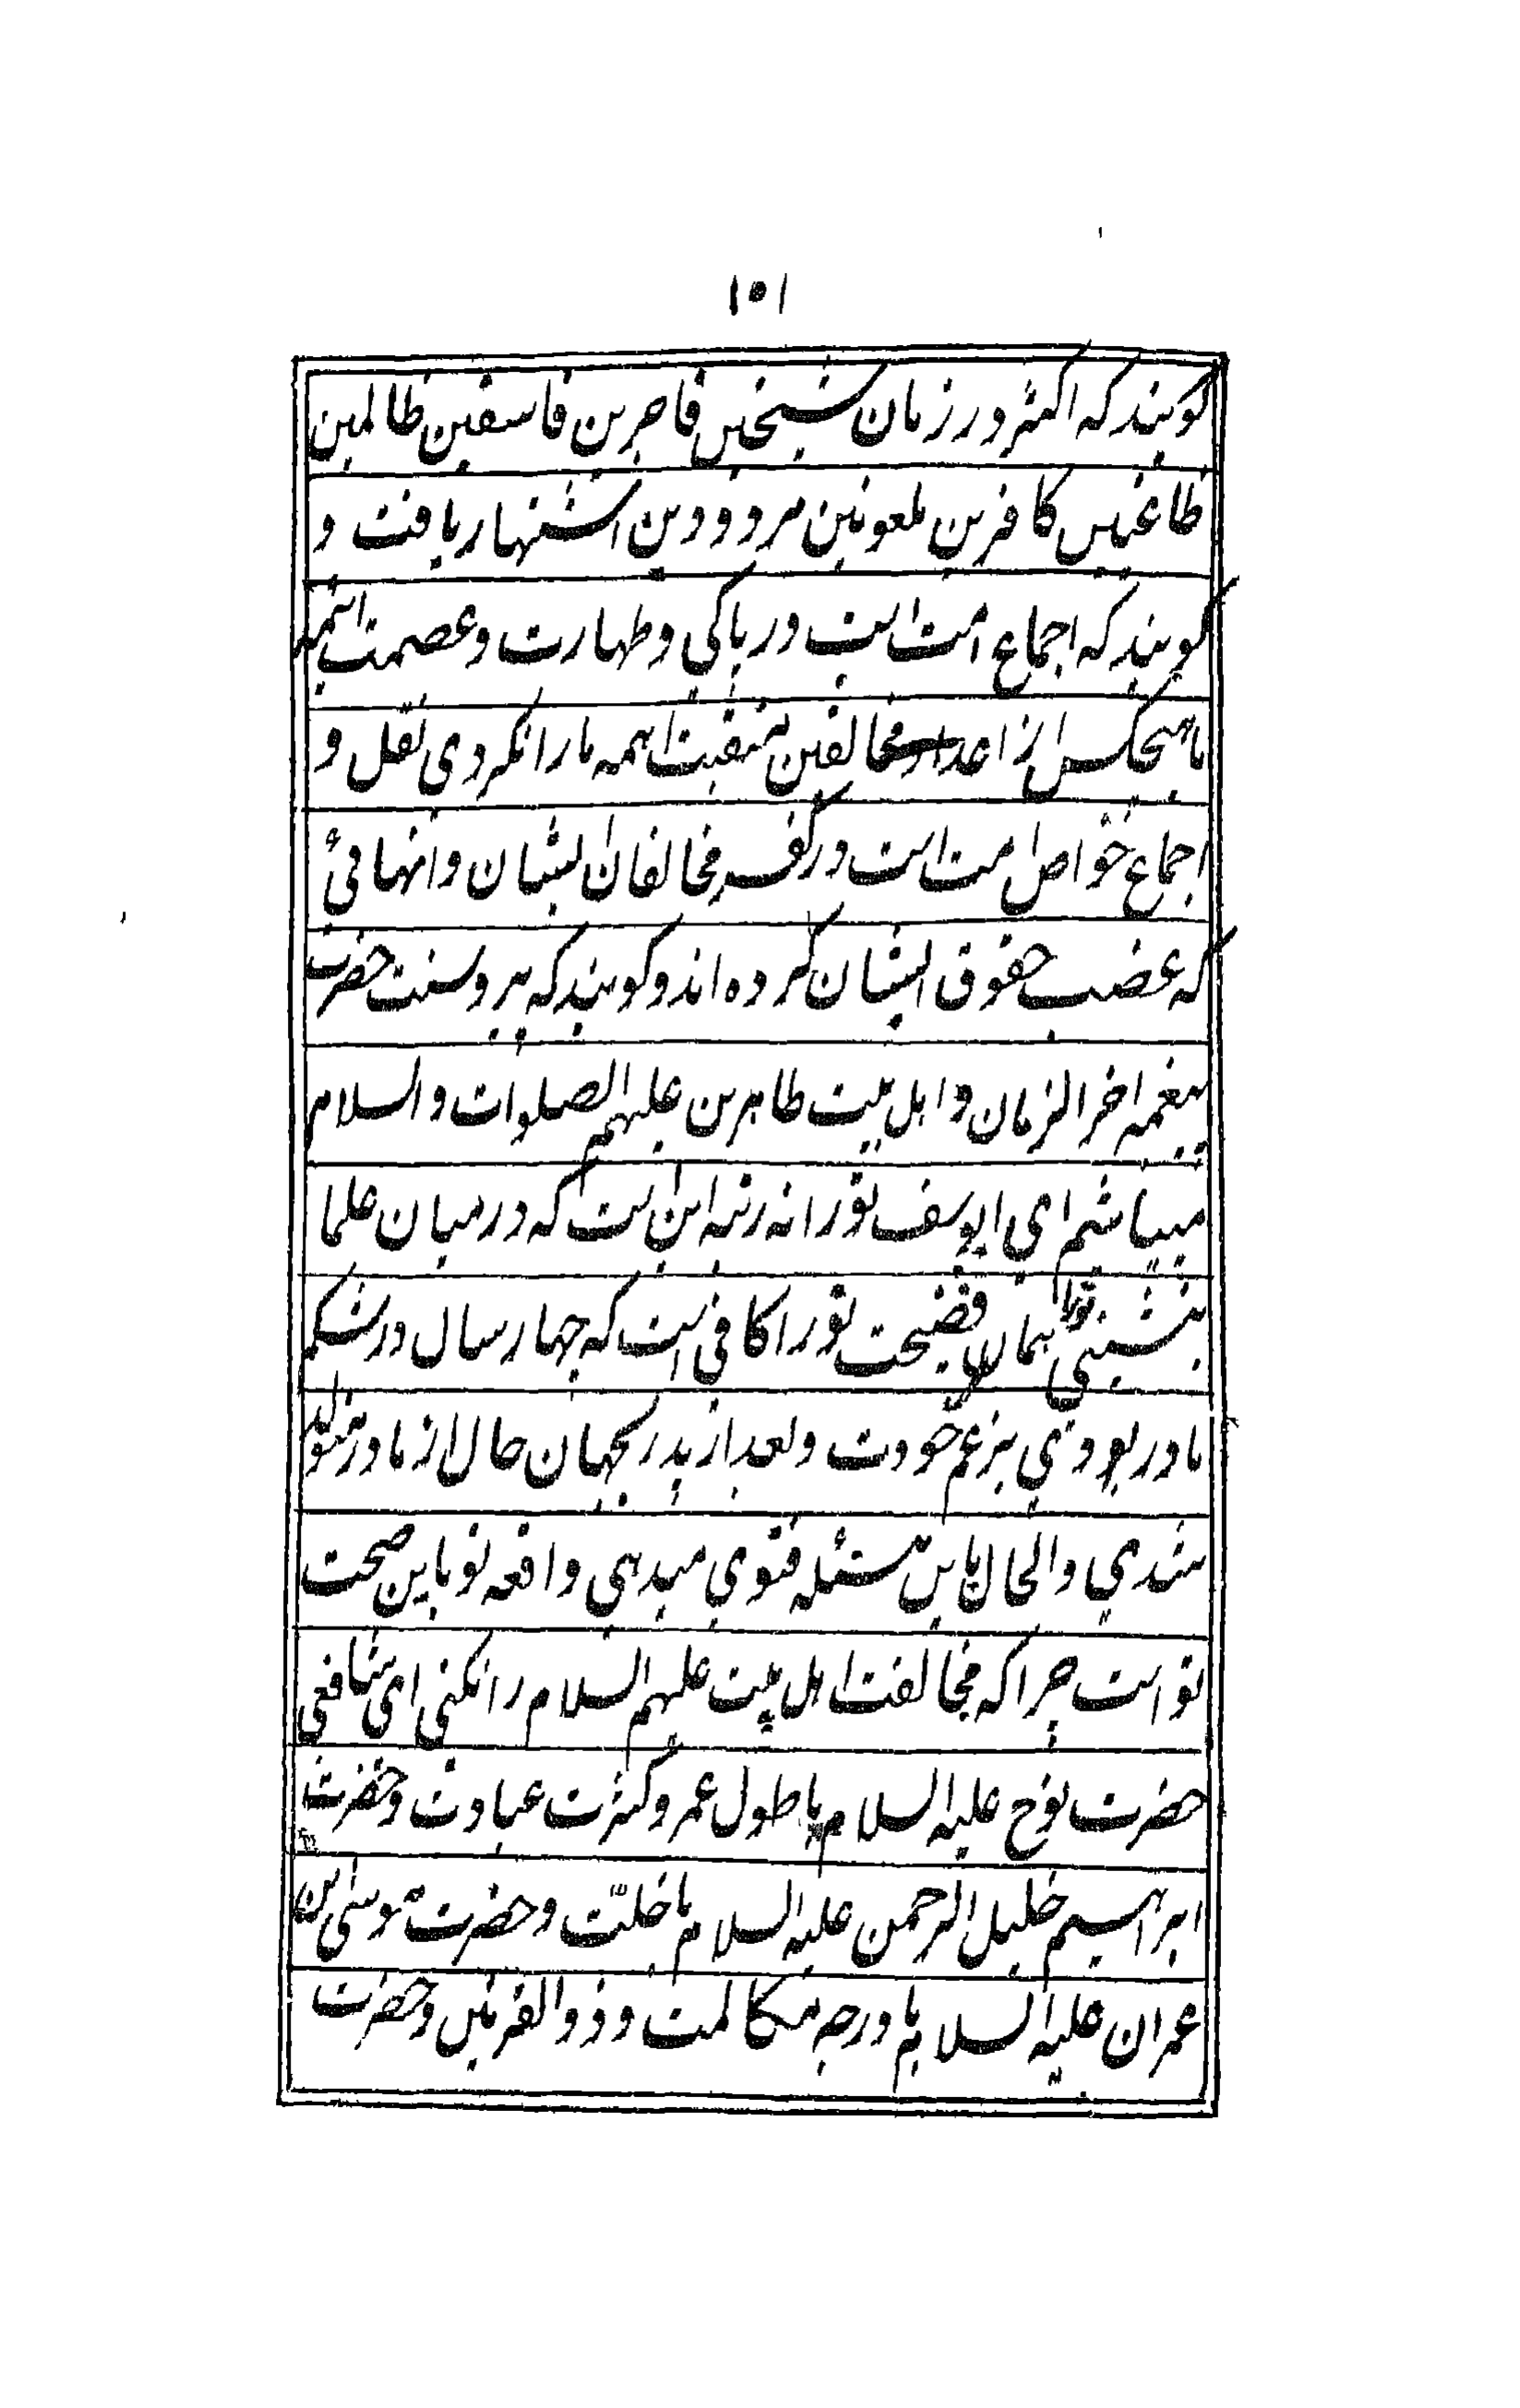 ۱۵۱
کویند که اکثر در زمان شیخین فاجرین فاسقین ظالمین
طاغیین کافرین ملعونین مردودین اشتهار یافت و
کویند که اجماع امت است در پاکی و طهارت و عصمت ائمه
ما هیچکس از اعداء و مخالفین منقبت ائمه ما را نکردی نقل و
اجماع خواص امت است در کفر مخالفان ایشان و انهائی
که غصب حقوق ایشان کرده اند و کویند که پیرو سنت حضرت
پیغمبر اخر الزمان و اهل بیت طاهرین علیهم الصلوات والسلام
میباشم ای ابویوسف تو را نه رتبه این است که در میان علما
بنشینی همان فضیحت تو را کافی است که چهار سال در شکم
مادر بودی بزعم خودت و بعد از پدر بجهان حال از مادر متولد
شدی والحال باین مسئله فتوی میدهی واقعه تو باین صحت
تو است چرا که مخالفت اهل بیت علیهم السلام را نکنی ای شافعی
حضرت نوح علیه السلام با طول عمر و کثرت عبادت و حضرت
ابراهیم خلیل الرحمن علیه السلام با خلّت و حضرت موسی بن
عمران علیه السلام با درجه مکالمت و ذوالقرنین و حضرت